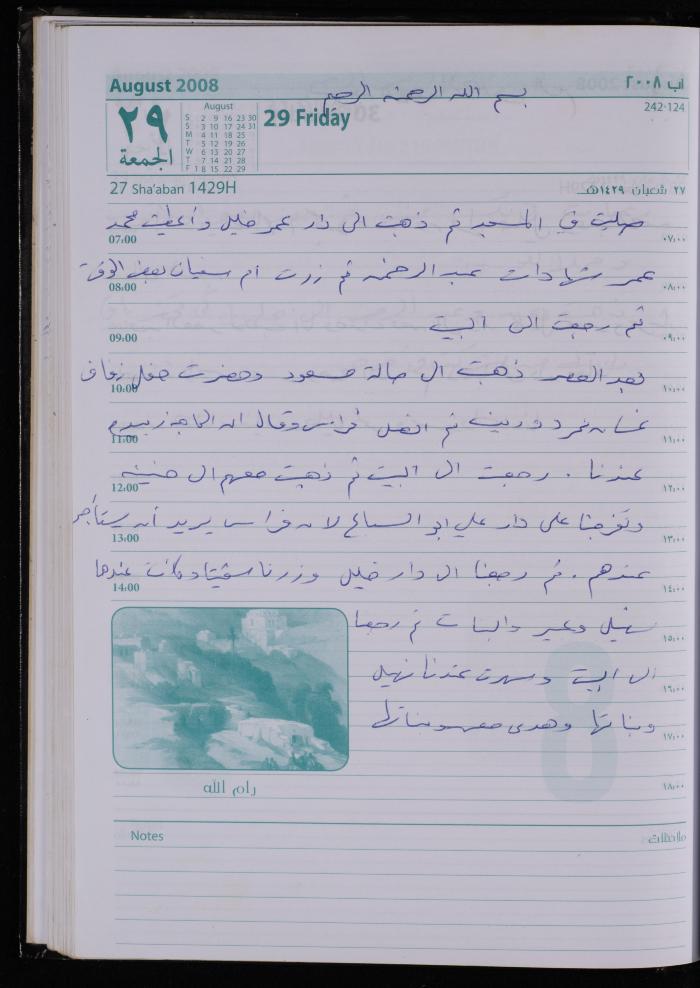 August 2008
آب ٢٠٠٨
بسم الله الرحمن الرحيم
٢٩
الجمعة
August
S 2 9 16 23 30
S 3 10 17 24 31
M 4 11 18 25
T 5 12 19 26
W 6 13 20 27
T 7 14 21 28
F 1 8 15 22 29
29 Friday
242-124
27 Sha'aban 1429H
٢٧ شعبان ١٤٢٩هـ
صليت في المسجد ثم ذهبت الى دار عمر خليل وأعطيت محمد
07:00 ٠٧:٠٠
عمر شهادات عبد الرحمن ثم زرت ام سفيان لبعض الوقت
08:00 ٠٨:٠٠
ثم رجعت الى البيت
09:00 ٠٩:٠٠
بعد العصر ذهبت الى صالة مسعود وحضرت حفل زفاف
10:00 ١٠:٠٠
غسان نمر ثم اتصل فراس وقال ان
11:00 ١١:٠٠
عندنا . رجعت الى البيت ثم ذهبت معهم ال
12:00 ١٢:٠٠
وتفرجنا على دار علي ابو السباع لان فراس يريد أن يستأجر
13:00 ١٣:٠٠
عندهم . ثم رجعنا ال دار خليل وزرنا وكانت عندها
14:00 ١٤:٠٠
سهيل وعبير والبنات ثم رجعنا
١٥:٠٠
ال البيت وسهرت عندنا نهيل
١٦:٠٠
وبناتها وهدى معهم وبناتها
١٧:٠٠
رام الله
١٨:٠٠
Notes
ملاحظات